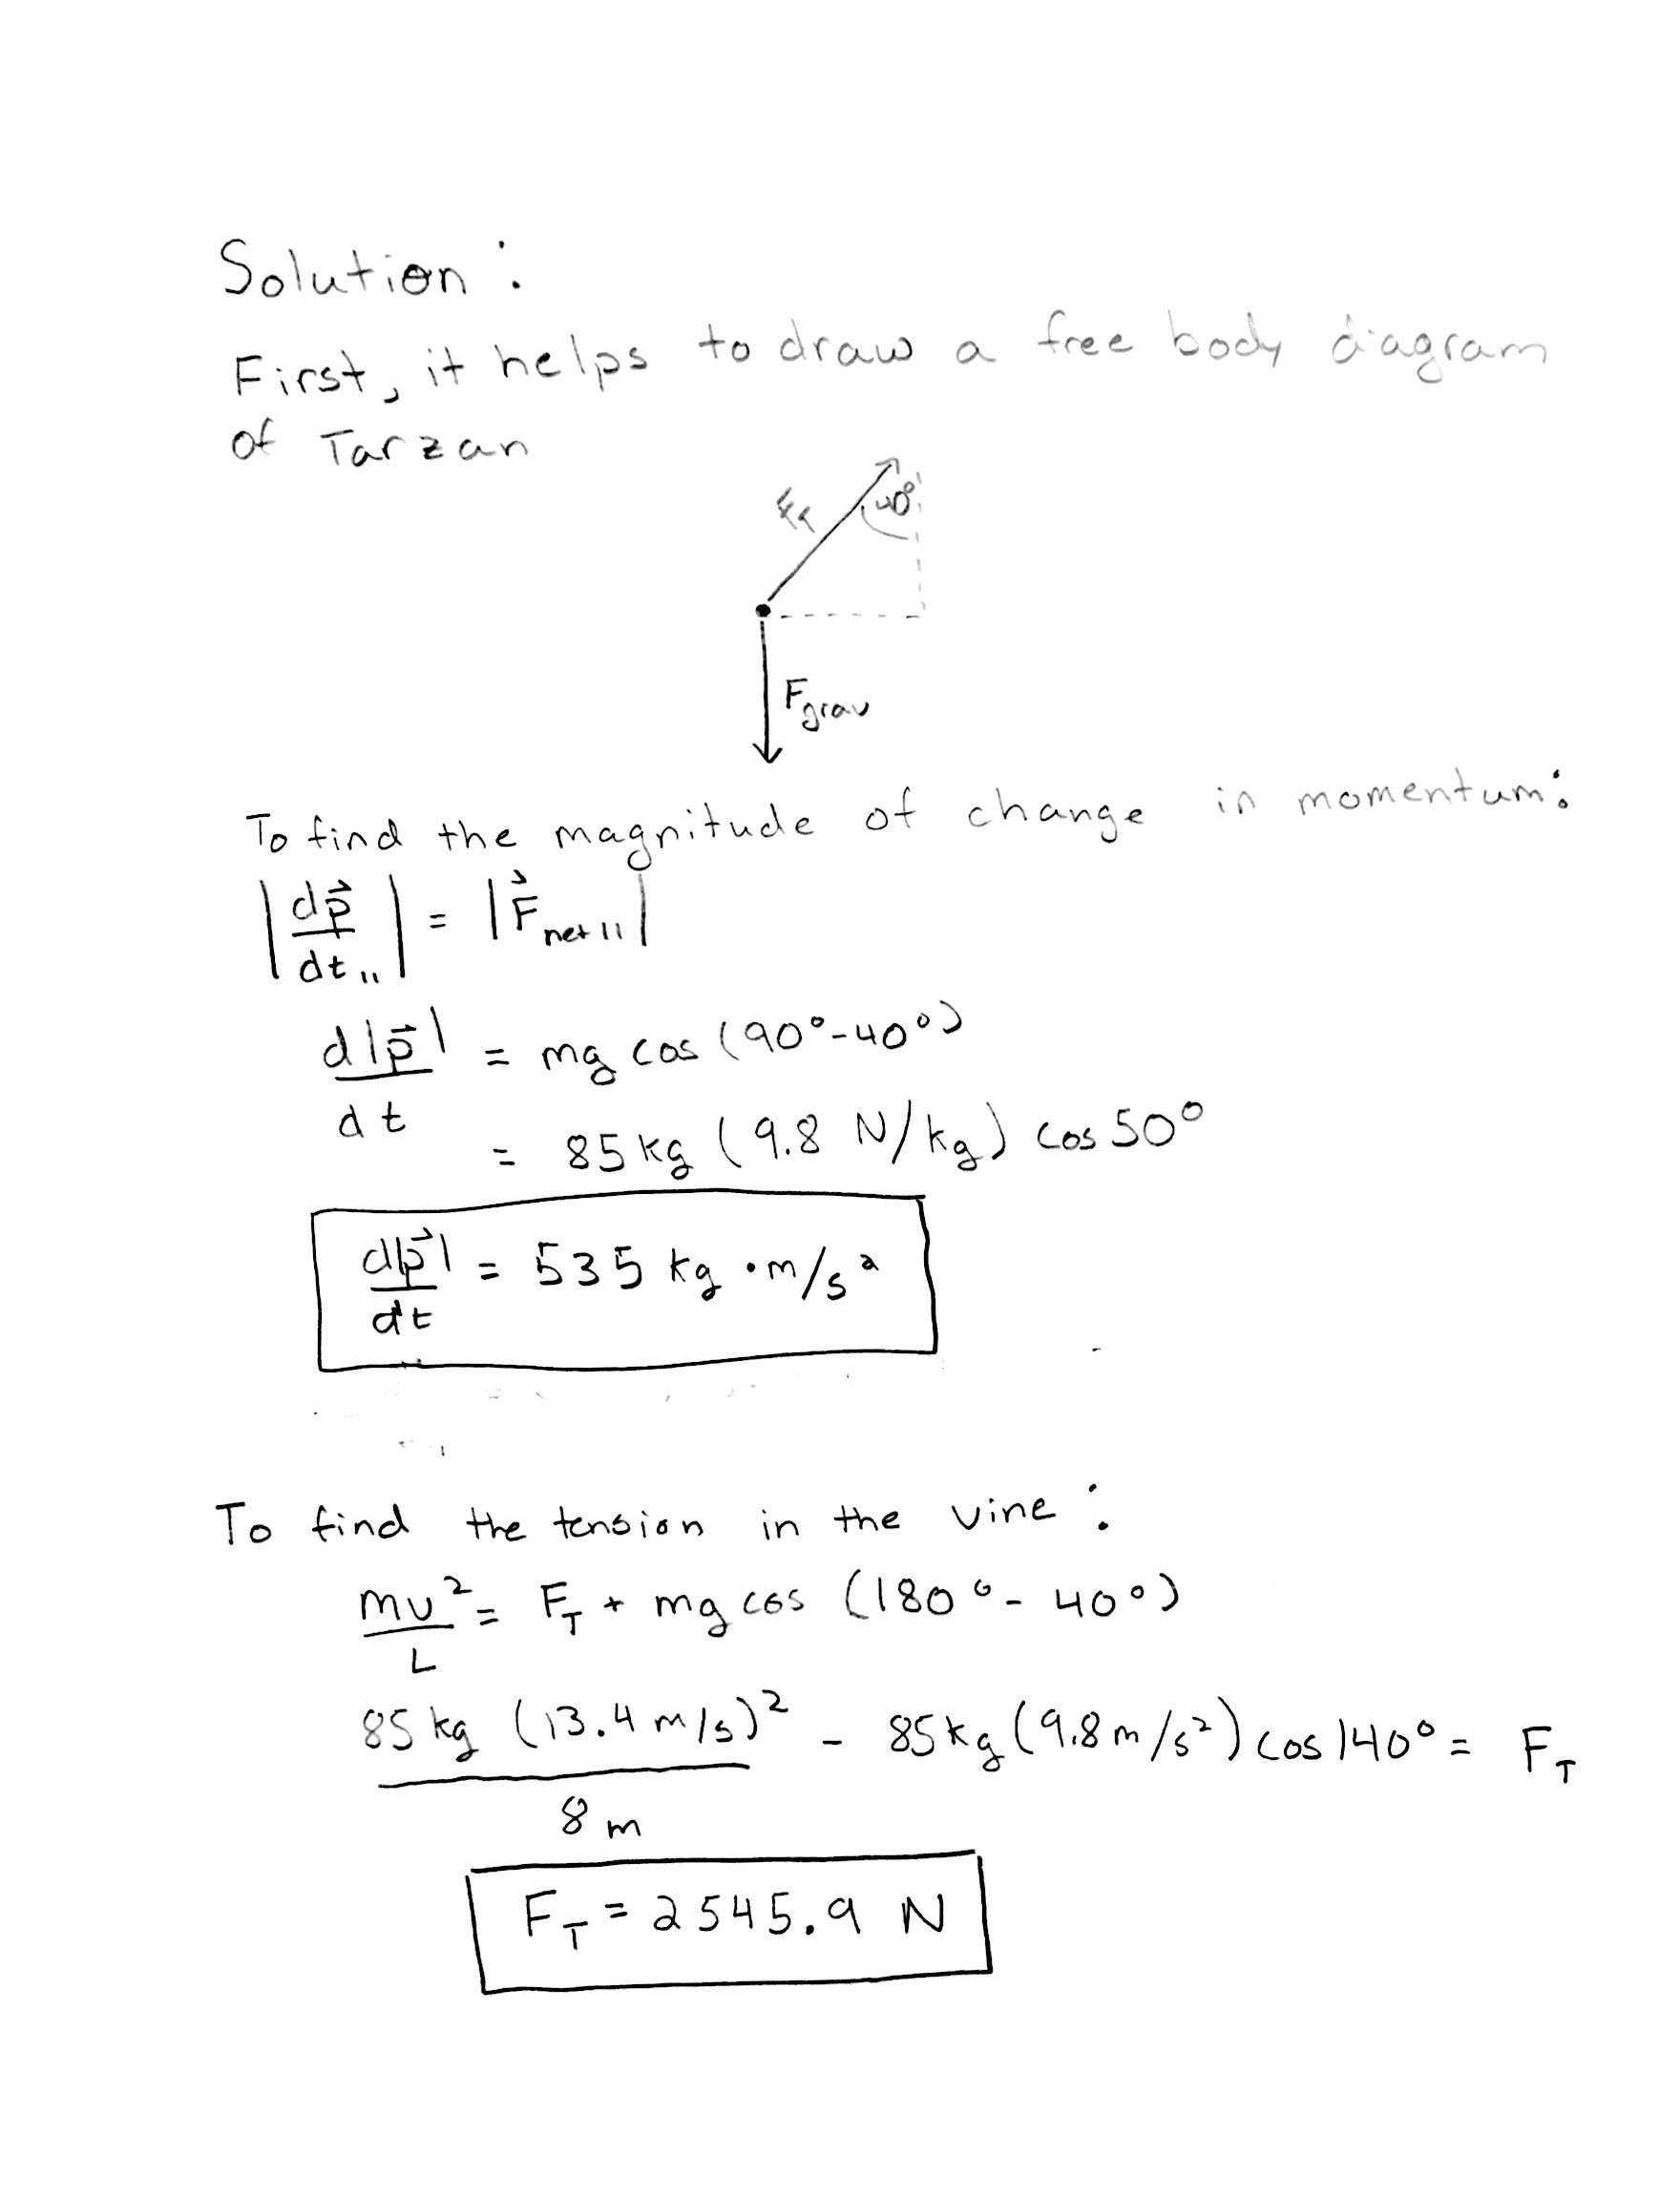 Solution:
First, it helps to draw a free body diagram
of Tarzan
F_T
40°
F_grav
To find the magnitude of change in momentum:
|dp⃗/dt_∥| = |F⃗_net∥|
d|p⃗|/dt = mg cos (90°-40°)
= 85 kg (9.8 N/kg) cos 50°
d|p⃗|/dt = 535 kg·m/s²
To find the tension in the vine:
mv²/L = F_T + mg cos (180°- 40°)
85 kg (13.4 m/s)²/8 m - 85 kg (9.8 m/s²) cos 140° = F_T
F_T = 2545.9 N